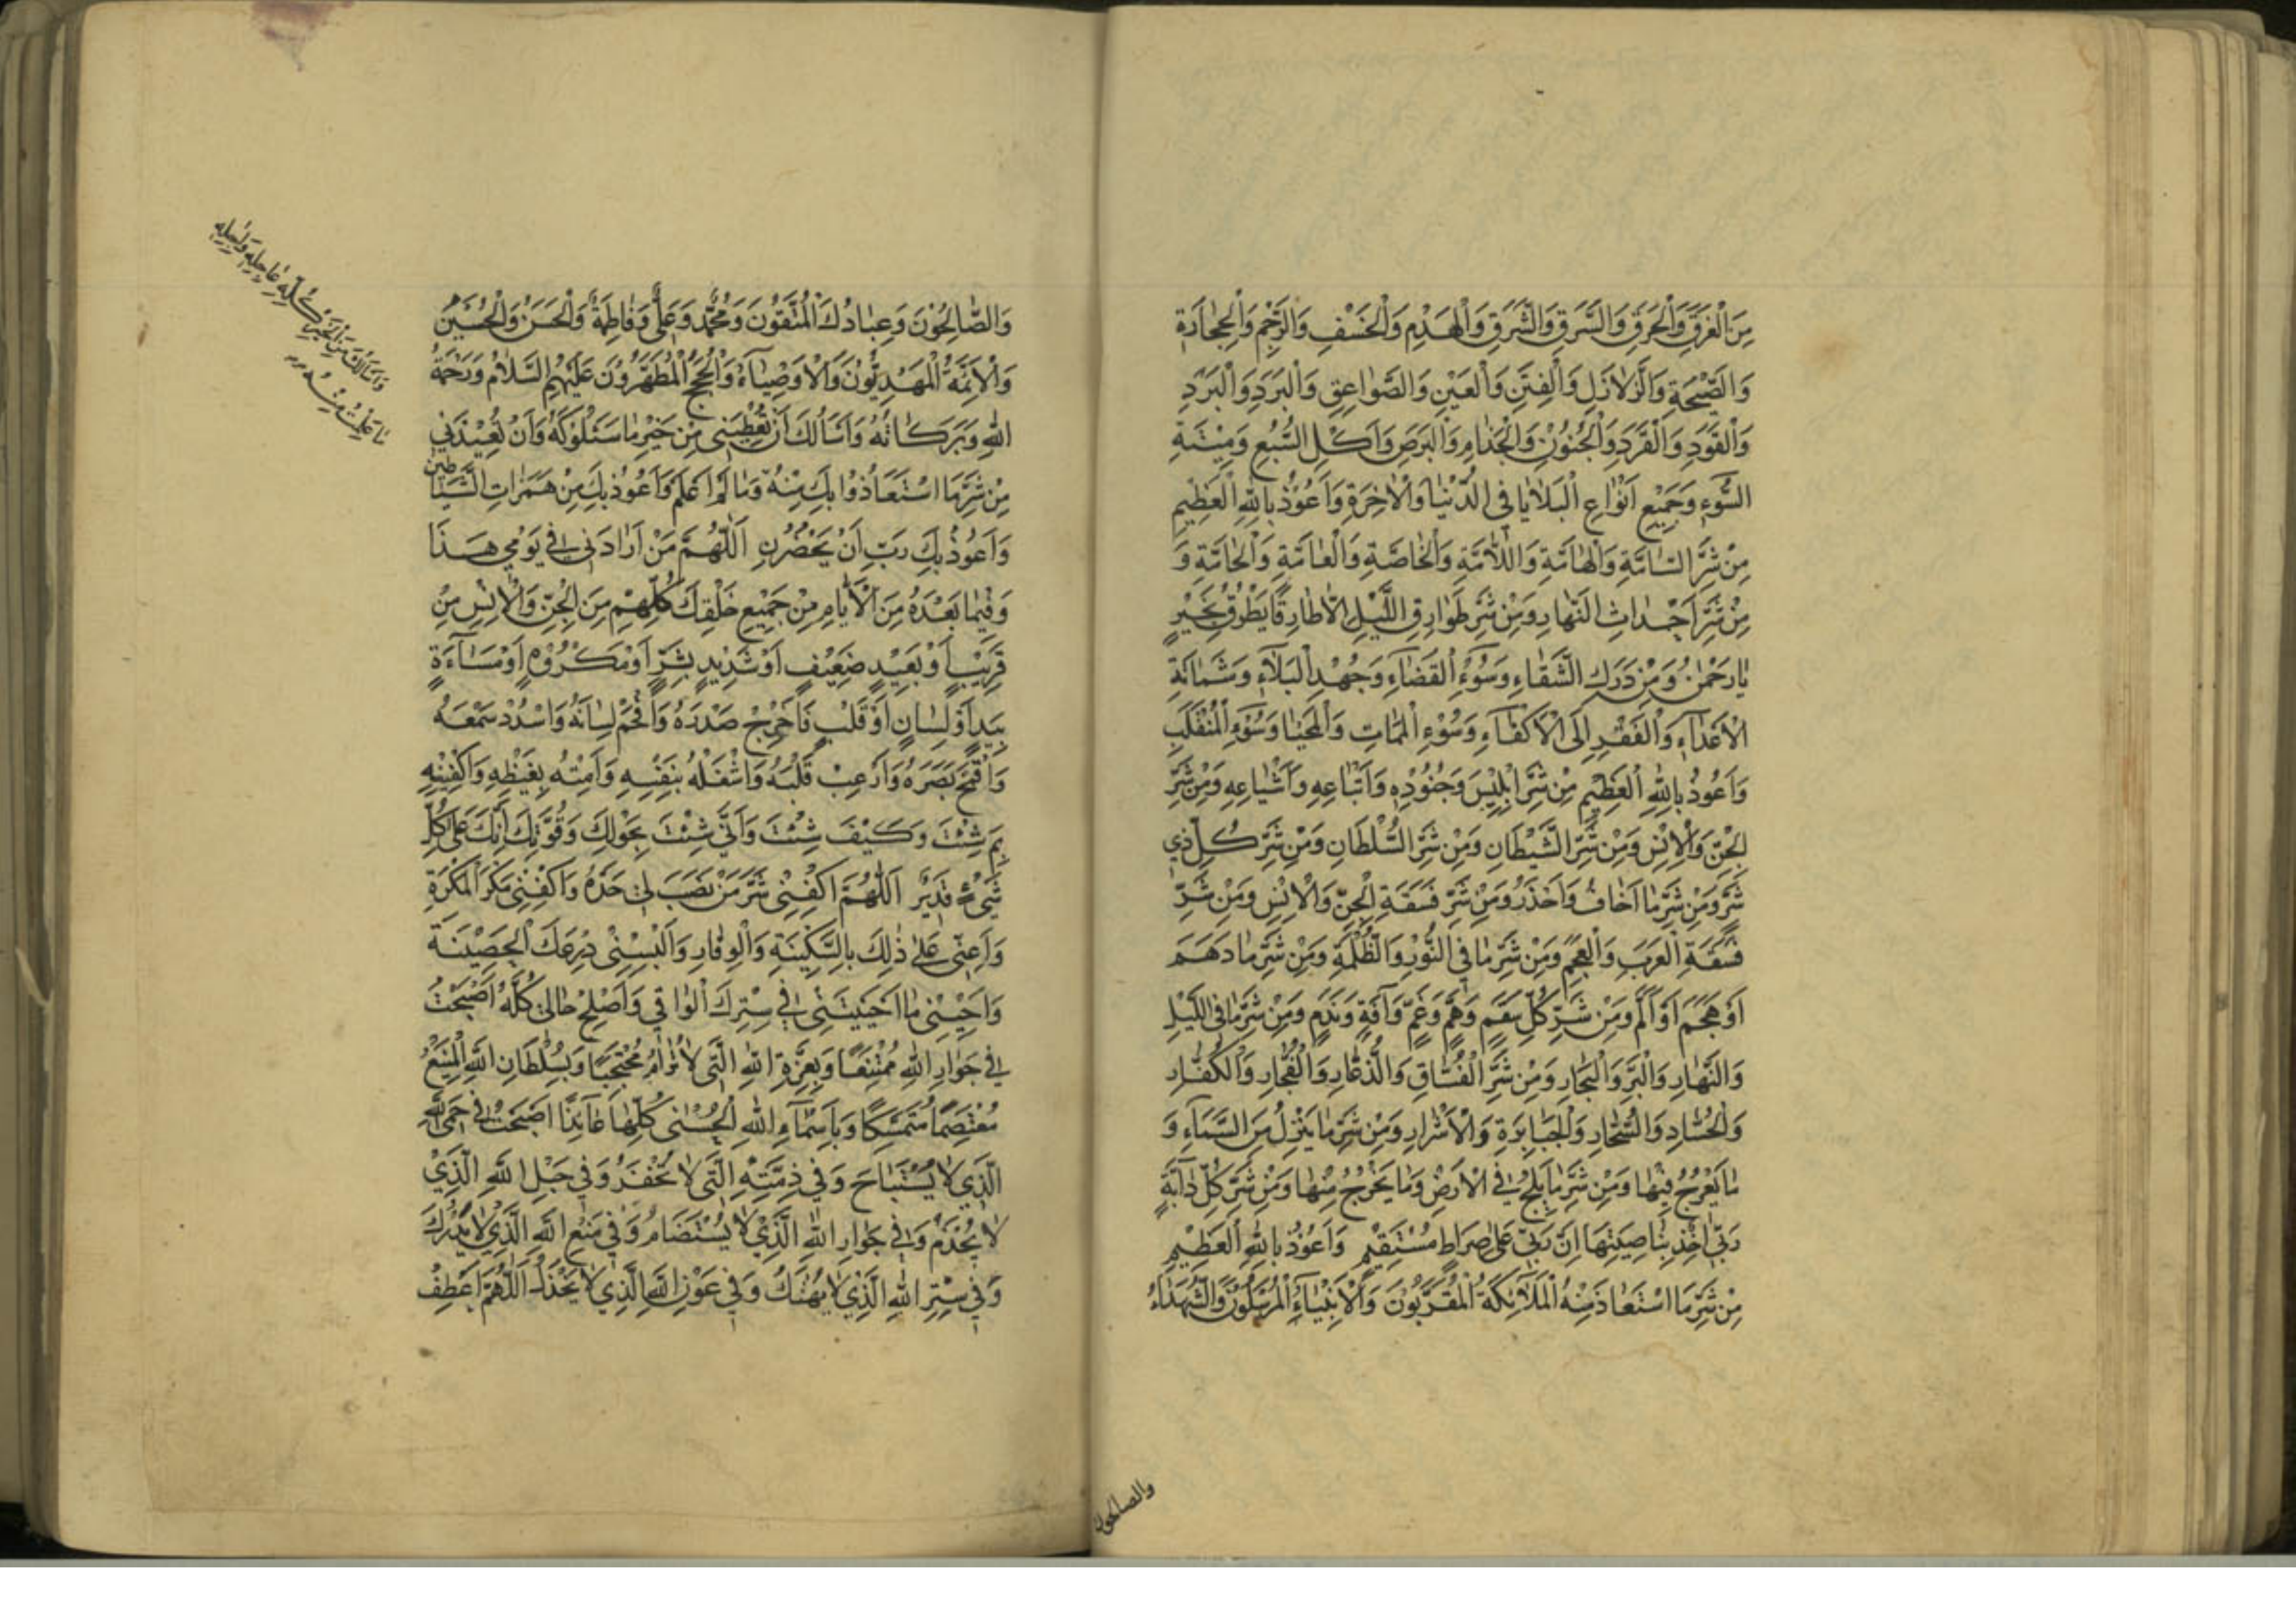 مِنَ الْغَرَقِ وَالْحَرَقِ وَالسَّرَقِ وَالشَّرَقِ وَالْهَدْمِ وَالْخَسْفِ وَالرَّجْمِ وَالْحِجَارَةِ
وَالصَّيْحَةِ وَالزَّلَازِلِ وَالْفِتَنِ وَالْعَيْنِ وَالصَّوَاعِقِ وَالْبَرَدِ وَالْبَرْدِ
وَالْقَوَدِ وَالْقَرَدِ وَالْجُنُونِ وَالْجُذَامِ وَالْبَرَصِ وَاَكْلِ السَّبُعِ وَمِيْتَةِ
السُّوءِ وَجَمِيْعِ اَنْوَاعِ الْبَلَايَا فِي الدُّنْيَا وَالْاٰخِرَةِ وَاَعُوْذُ بِاللهِ الْعَظِيْمِ
مِنْ شَرِّ السَّامَّةِ وَالْهَامَّةِ وَاللَّامَّةِ وَالْخَاصَّةِ وَالْعَامَّةِ وَالْحَامَّةِ وَ
مِنْ شَرِّ اَحْدَاثِ النَّهَارِ وَمِنْ شَرِّ طَوَارِقِ اللَّيْلِ اِلَّا طَارِقًا يَطْرُقُ بِخَيْرٍ
يَا رَحْمٰنُ وَمِنْ دَرَكِ الشَّقَاءِ وَسُوْءِ الْقَضَاءِ وَجُهْدِ الْبَلَاءِ وَشَمَاتَةِ
الْاَعْدَاءِ وَالْفَقْرِ اِلَى الْاَكْفَاءِ وَسُوْءِ الْمَمَاتِ وَالْمَحْيَا وَسُوْءِ الْمُنْقَلَبِ
وَاَعُوْذُ بِاللهِ الْعَظِيْمِ مِنْ شَرِّ اِبْلِيْسَ وَجُنُوْدِهِ وَاَتْبَاعِهِ وَاَشْيَاعِهِ وَمِنْ شَرِّ
الْجِنِّ وَالْاِنْسِ وَمِنْ شَرِّ الشَّيْطَانِ وَمِنْ شَرِّ السُّلْطَانِ وَمِنْ شَرِّ كُلِّ ذِي
شَرٍّ وَمِنْ شَرِّ مَا اَخَافُ وَاَحْذَرُ وَمِنْ شَرِّ فَسَقَةِ الْجِنِّ وَالْاِنْسِ وَمِنْ شَرِّ
فَسَقَةِ الْعَرَبِ وَالْعَجَمِ وَمِنْ شَرِّ مَا فِي النُّوْرِ وَالظُّلْمَةِ وَمِنْ شَرِّ مَا دَهَمَ
اَوْ هَجَمَ اَوْ اَلَمَّ وَمِنْ شَرِّ كُلِّ سَقَمٍ وَهَمٍّ وَغَمٍّ وَآفَةٍ وَنَدَمٍ وَمِنْ شَرِّ مَا فِي اللَّيْلِ
وَالنَّهَارِ وَالْبَرِّ وَالْبِحَارِ وَمِنْ شَرِّ الْفُسَّاقِ وَالذُّعَّارِ وَالْفُجَّارِ وَالْكُفَّارِ
وَالْحُسَّادِ وَالسُّحَّارِ وَالْجَبَابِرَةِ وَالْاَشْرَارِ وَمِنْ شَرِّ مَا يَنْزِلُ مِنَ السَّمَاءِ وَ
مَا يَعْرُجُ فِيْهَا وَمِنْ شَرِّ مَا يَلِجُ فِي الْاَرْضِ وَمَا يَخْرُجُ مِنْهَا وَمِنْ شَرِّ كُلِّ دَابَّةٍ
رَبِّي اٰخِذٌ بِنَاصِيَتِهَا اِنَّ رَبِّي عَلٰى صِرَاطٍ مُسْتَقِيْمٍ وَاَعُوْذُ بِاللهِ الْعَظِيْمِ
مِنْ شَرِّ مَا اسْتَعَاذَ مِنْهُ الْمَلَائِكَةُ الْمُقَرَّبُوْنَ وَالْاَنْبِيَاءُ الْمُرْسَلُوْنَ وَالشُّهَدَاءُ
والصالحون
وَالصَّالِحُوْنَ وَعِبَادُكَ الْمُتَّقُوْنَ وَمُحَمَّدٌ وَعَلِيٌّ وَفَاطِمَةُ وَالْحَسَنُ وَالْحُسَيْنُ
وَالْاَئِمَّةُ الْمَهْدِيُّوْنَ وَالْاَوْصِيَاءُ وَالْحُجَجُ الْمُطَهَّرُوْنَ عَلَيْهِمُ السَّلَامُ وَرَحْمَةُ
اللهِ وَبَرَكَاتُهُ وَاَسْأَلُكَ اَنْ تُعْطِيَنِي مِنْ خَيْرِ مَا سَئَلُوْكَهُ وَاَنْ تُعِيْذَنِي
مِنْ شَرِّ مَا اسْتَعَاذُوا بِكَ مِنْهُ وَمَا لَمْ اَعْلَمْ وَاَعُوْذُ بِكَ مِنْ هَمَزَاتِ الشَّيَاطِيْنِ
وَاَعُوْذُ بِكَ رَبِّ اَنْ يَحْضُرُوْنِ اَللّٰهُمَّ مَنْ اَرَادَنِي فِي يَوْمِي هَذَا
وَفِيْمَا بَعْدَهُ مِنَ الْاَيَّامِ مِنْ جَمِيْعِ خَلْقِكَ كُلِّهِمْ مِنَ الْجِنِّ وَالْاِنْسِ مِنْ
قَرِيْبٍ اَوْ بَعِيْدٍ ضَعِيْفٍ اَوْ شَدِيْدٍ بِشَرٍّ اَوْ مَكْرُوْهٍ اَوْ مَسَاءَةٍ
بِيَدٍ اَوْ لِسَانٍ اَوْ قَلْبٍ فَاَحْرِجْ صَدْرَهُ وَاَفْحِمْ لِسَانَهُ وَاسْدُدْ سَمْعَهُ
وَاَقْمِحْ بَصَرَهُ وَاَرْعِبْ قَلْبَهُ وَاشْغَلْهُ بِنَفْسِهِ وَاَمِتْهُ بِغَيْظِهِ وَاكْفِنِيْهِ
بِمَ شِئْتَ وَكَيْفَ شِئْتَ وَاَنّٰى شِئْتَ بِحَوْلِكَ وَقُوَّتِكَ اِنَّكَ عَلٰى كُلِّ
شَيْءٍ قَدِيْرٌ اَللّٰهُمَّ اكْفِنِي شَرَّ مَنْ نَصَبَ لِي حَدَّهُ وَاكْفِنِي مَكْرَ الْمَكَرَةِ
وَاَعِنِّي عَلٰى ذٰلِكَ بِالسَّكِيْنَةِ وَالْوِقَارِ وَاَلْبِسْنِي دِرْعَكَ الْحَصِيْنَةَ
وَاَحْيِنِي مَا اَحْيَيْتَنِي فِي سِتْرِكَ الْوَاقِي وَاَصْلِحْ حَالِي كُلَّهُ اَصْبَحْتُ
فِي جِوَارِ اللهِ مُمْتَنِعًا وَبِعِزَّةِ اللهِ الَّتِي لَا تُرَامُ مُحْتَجِبًا وَبِسُلْطَانِ اللهِ الْمَنِيْعِ
مُعْتَصِمًا مُتَمَسِّكًا وَبِاَسْمَاءِ اللهِ الْحُسْنٰى كُلِّهَا عَائِذًا اَصْبَحْتُ فِي حِمَى اللهِ
الَّذِي لَا يُسْتَبَاحُ وَفِي ذِمَّتِهِ الَّتِي لَا تُخْفَرُ وَفِي حَبْلِ اللهِ الَّذِيْ
لَا يُجْذَمُ وَفِي جِوَارِ اللهِ الَّذِيْ لَا يُسْتَضَامُ وَفِي مَنْعِ اللهِ الَّذِيْ لَا يُدْرَكُ
وَفِي سِتْرِ اللهِ الَّذِيْ لَا يُهْتَكُ وَفِي عَوْنِ اللهِ الَّذِي لَا يَخْذُلُ اَللّٰهُمَّ اعْطِفْ
وَاَسْأَلُكَ مِنَ الْخَيْرِ كُلِّهِ عَاجِلِهِ وَاٰجِلِهِ
مَا عَلِمْتُ مِنْهُ